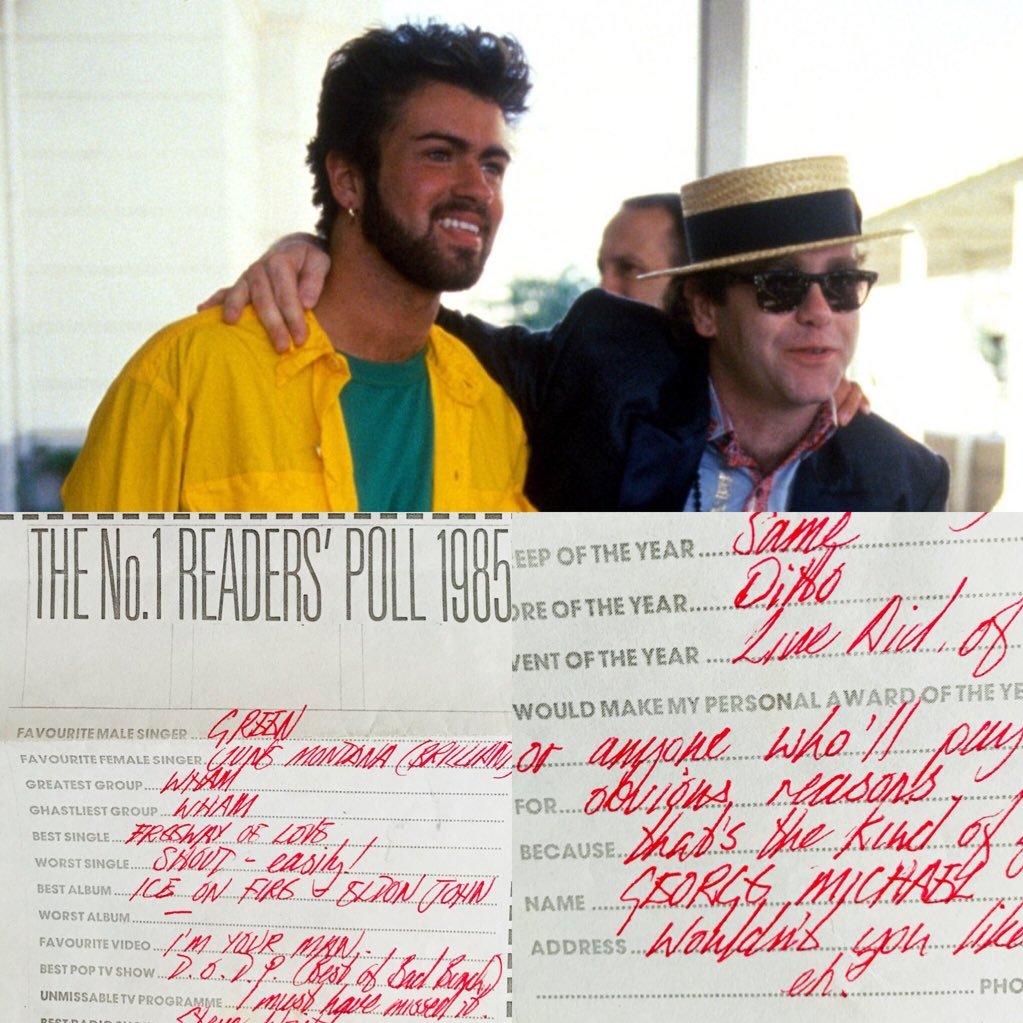 THE No.1 READERS' POLL 1985
FAVOURITE MALE SINGER GREEN
FAVOURITE FEMALE SINGER MONTANA (BRILLIAN
GREATEST GROUP WHAM
GHASTLIEST GROUP WHAM
BEST SINGLE FREEWAY OF LOVE
WORST SINGLE SHOUT - easily!
BEST ALBUM ICE ON FIRE ELTON JOHN
WORST ALBUM —
FAVOURITE VIDEO I'M YOUR MAN.
BEST POP TV SHOW D.O.D.P. (Best of Bad Bunch)
UNMISSABLE TV PROGRAMME I must have missed it.
BEST RADIO SHOW
EEP OF THE YEAR Same
ORE OF THE YEAR Ditto
VENT OF THE YEAR Live Aid, of
WOULD MAKE MY PERSONAL AWARD OF THE YE
or anyone who'll pay
FOR obvious reasons.
BECAUSE that's the kind of
NAME GEORGE MICHAEL
ADDRESS Wouldn't you like
eh? PHO